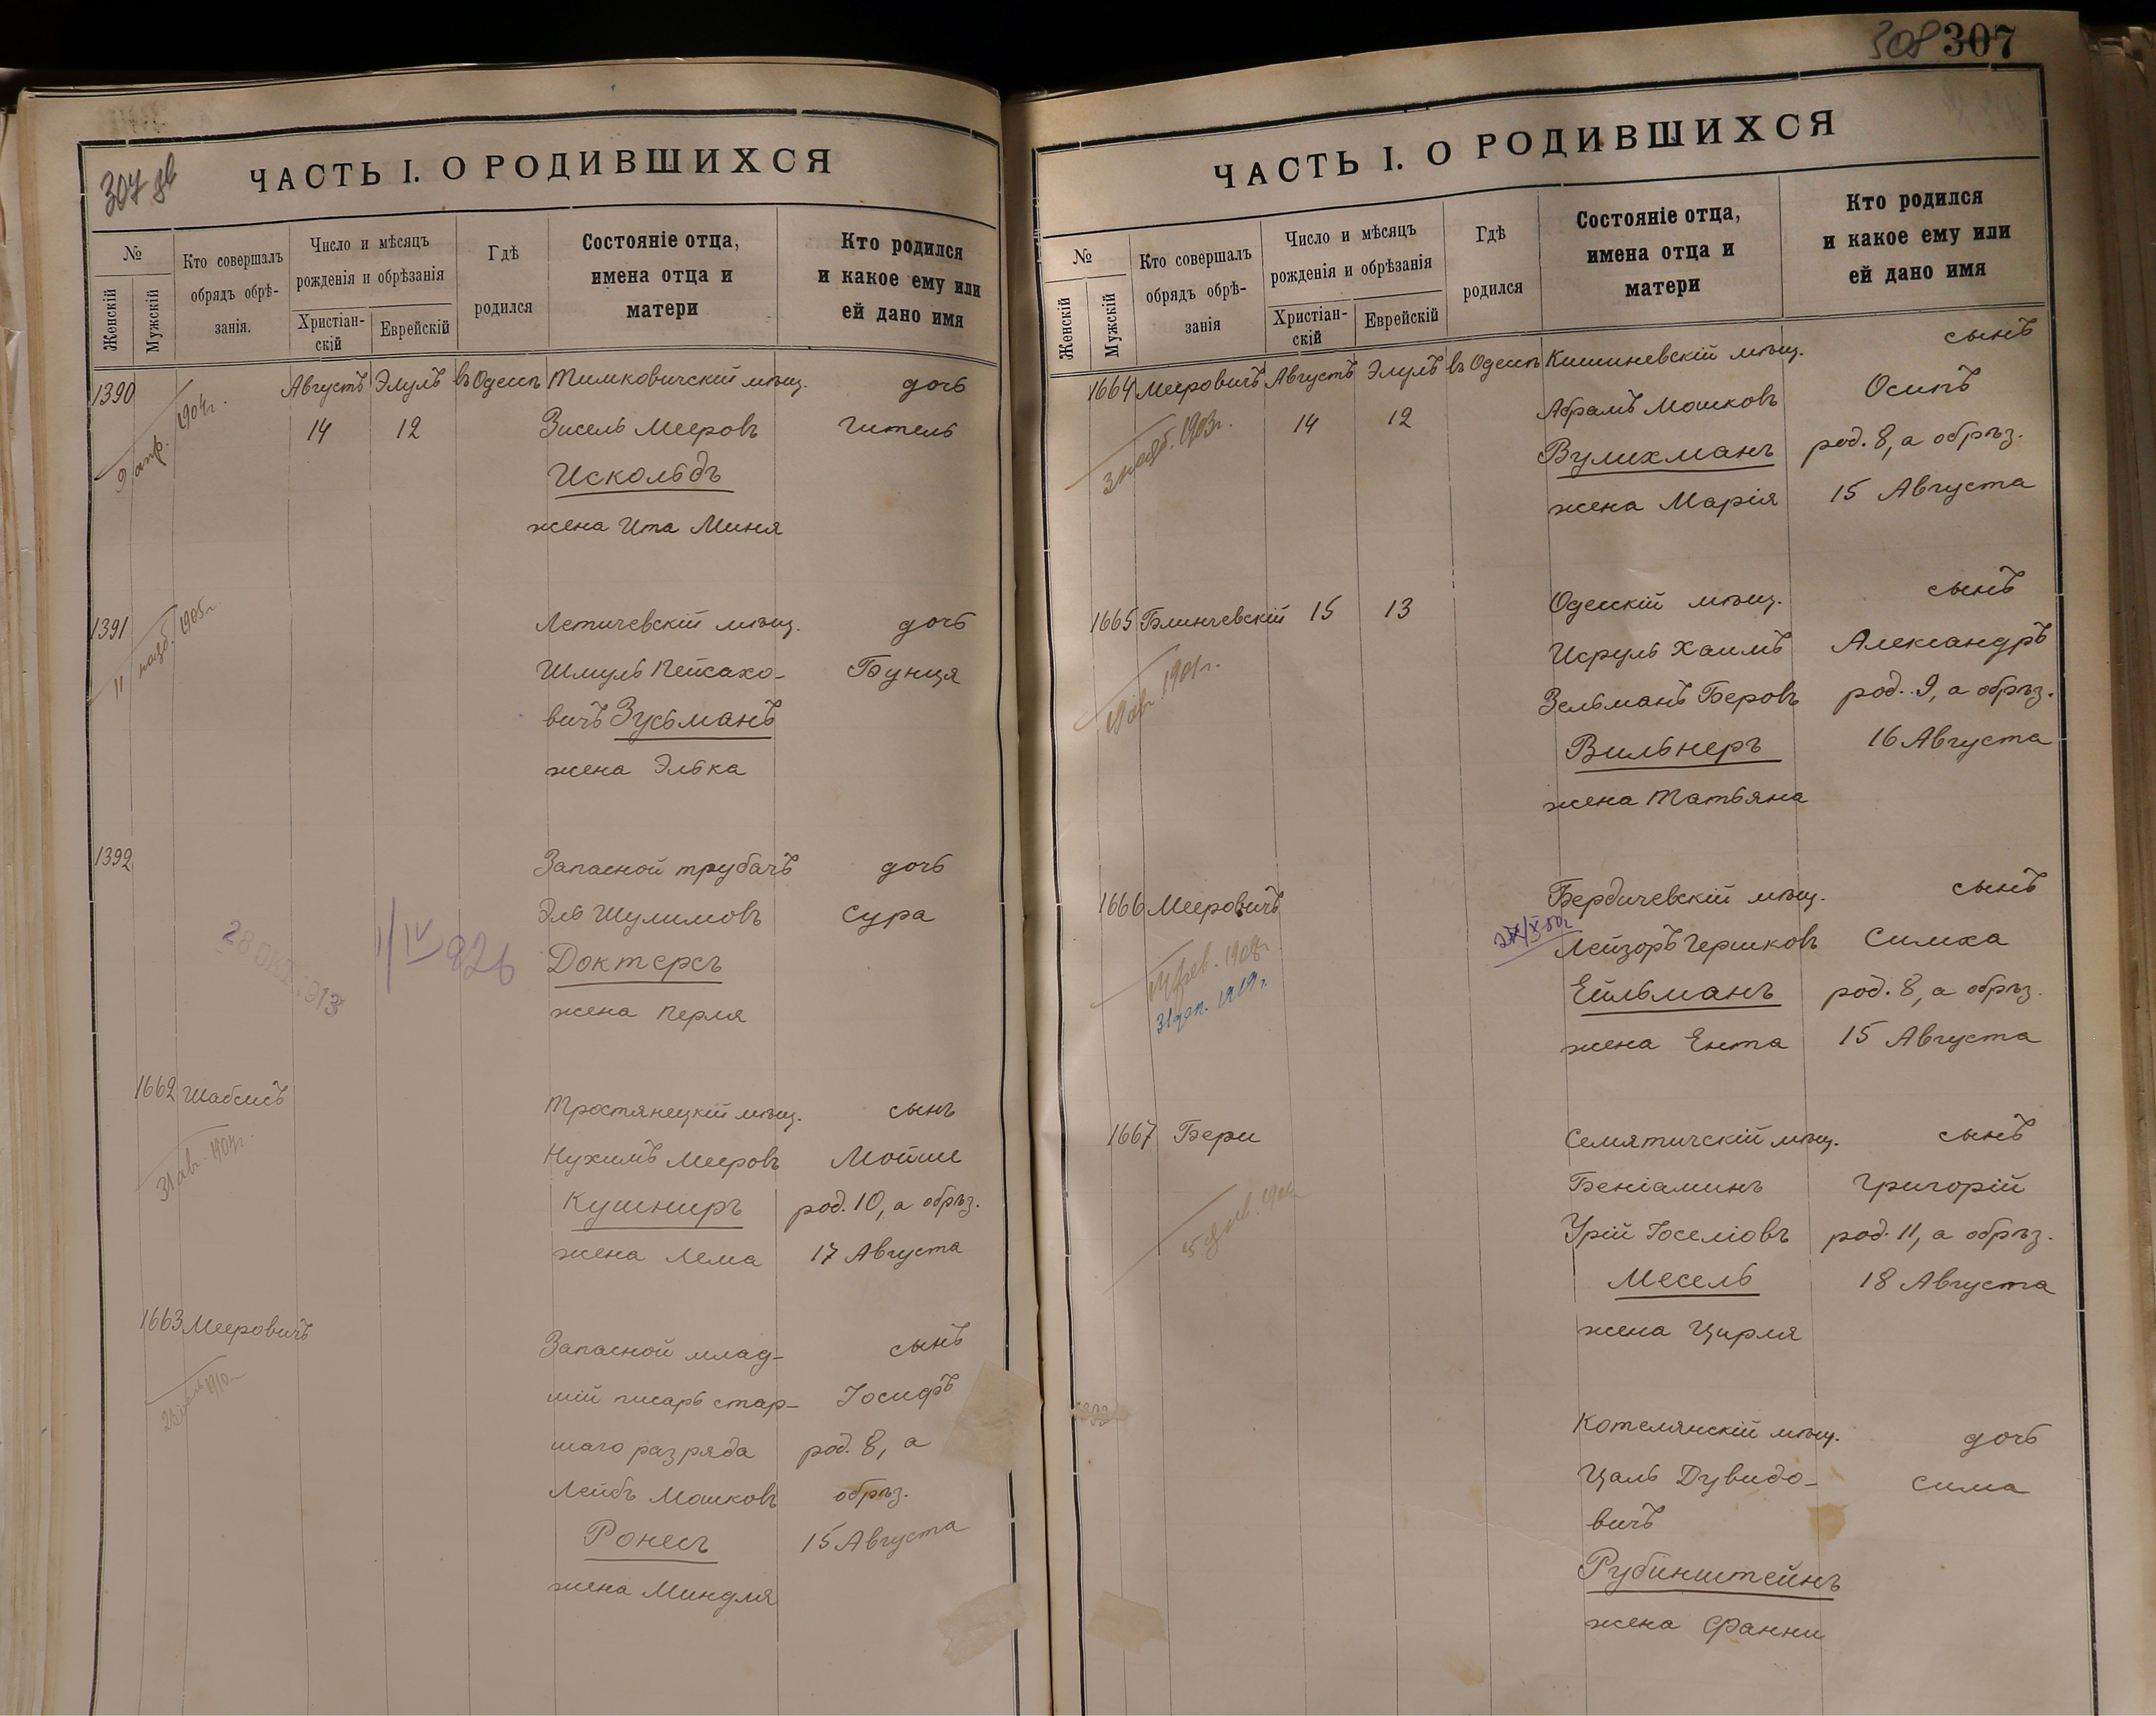 307 об
ЧАСТЬ I. О РОДИВШИХСЯ
№
Женскій
Мужскій
Кто совершалъ
обрядъ обрѣ-
занія.
Число и мѣсяцъ
рожденія и обрѣзанія
Христіан-
скій
Еврейскій
Гдѣ
родился
Состояніе отца,
имена отца и
матери
Кто родился
и какое ему или
ей дано имя
1390 Августъ Элулъ въ Одессѣ Тимковичскій мѣщ. дочь
9 апр. 1904г.
14 12 Зисель Мееровъ Гитель
Искольдъ
жена Ита Миня
1391 Летичевскій мѣщ. дочь
11 нояб. 1905г.
Шмуль Пейсахо- Бунця
вичъ Зусьманъ
жена Элька
1392 Запасной трубачъ дочь
Эль Шулимовъ Сура
28 ОКТ 1913
1/IV 926
Доктерсъ
жена Перля
1662 Шабсисъ Тростянецкій мѣщ. сынъ
31 авг. 1904г.
Нухимъ Мееровъ Мойше
Кушниръ род. 10, а обрѣз.
жена Лема 17 Августа
1663 Мееровичъ Запасной млад- сынъ
1910г
шій писарь стар- Іосифъ
шаго разряда род. 8, а
Лейбъ Мошковъ обрѣз.
Ронесъ 15 Августа
жена Миндля
308 307
ЧАСТЬ I. О РОДИВШИХСЯ
№
Женскій
Мужскій
Кто совершалъ
обрядъ обрѣ-
занія
Число и мѣсяцъ
рожденія и обрѣзанія
Христіан-
скій
Еврейскій
Гдѣ
родился
Состояніе отца,
имена отца и
матери
Кто родился
и какое ему или
ей дано имя
1664 Мееровичъ Августъ Элулъ въ Одессѣ Кишиневскій мѣщ. сынъ
3 нояб. 1903г.
14 12 Абрамъ Мошковъ Осипъ
Вулихманъ род. 8, а обрѣз.
жена Марія 15 Августа
1665 Блинчевскій 15 13 Одесскій мѣщ. сынъ
1901г.
Исруль Хаимъ Александръ
Зельманъ Беровъ род. 9, а обрѣз.
Вильнеръ 16 Августа
жена Татьяна
1666 Мееровичъ Бердичевскій мѣщ. сынъ
Лейзоръ Гершковъ Симха
фев. 1908г.
31 1919г.
Ейльманъ род. 8, а обрѣз.
жена Ента 15 Августа
1667 Бери Семятичскій мѣщ. сынъ
Беніаминъ Григорій
Урій Іоселіовъ род. 11, а обрѣз.
Месель 18 Августа
жена Цирля
Котелянскій мѣщ. дочь
Цаль Дувидо- Сима
вичъ
Рубинштейнъ
жена Фанни